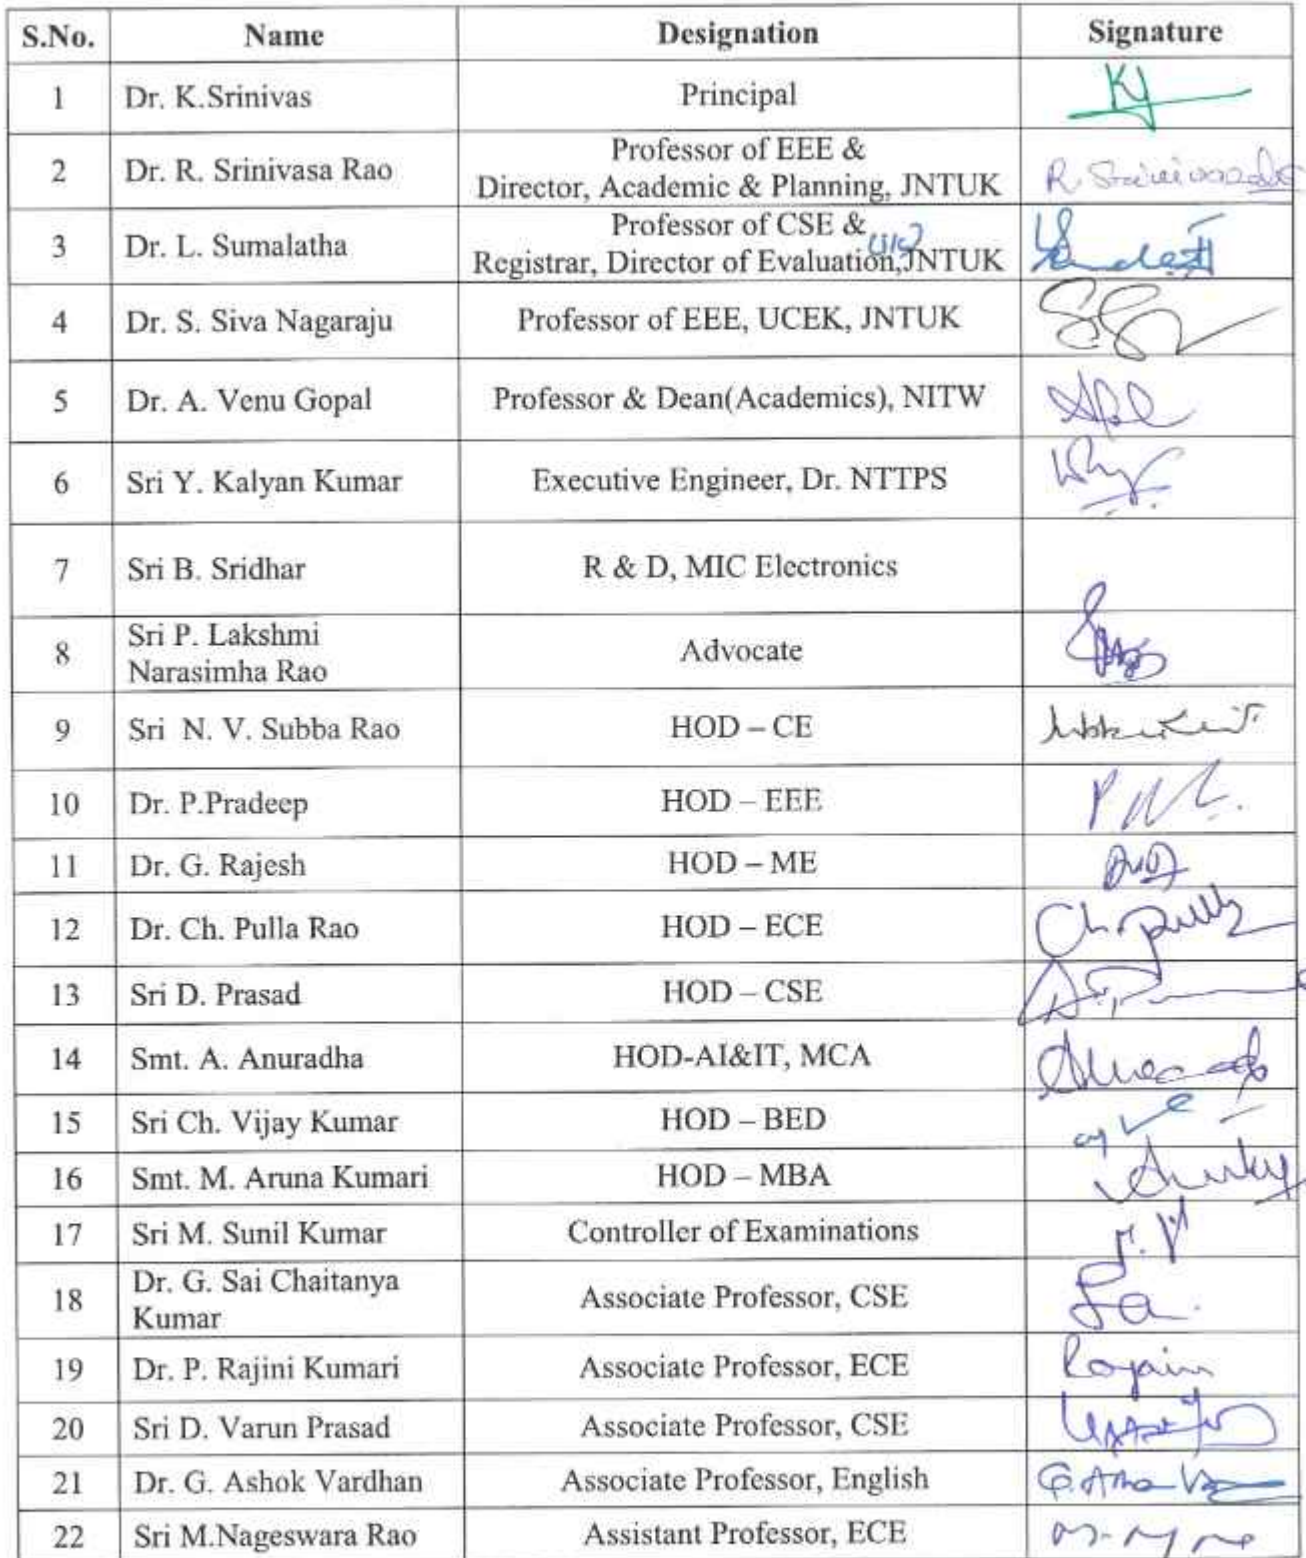 S.No. Name Designation Signature
1 Dr. K.Srinivas Principal
2 Dr. R. Srinivasa Rao Professor of EEE &
Director, Academic & Planning, JNTUK R. Srinivasa
3 Dr. L. Sumalatha Professor of CSE &
Registrar, Director of Evaluation, JNTUK
4 Dr. S. Siva Nagaraju Professor of EEE, UCEK, JNTUK
5 Dr. A. Venu Gopal Professor & Dean(Academics), NITW
6 Sri Y. Kalyan Kumar Executive Engineer, Dr. NTTPS
7 Sri B. Sridhar R & D, MIC Electronics
8 Sri P. Lakshmi
Narasimha Rao Advocate
9 Sri N. V. Subba Rao HOD – CE
10 Dr. P.Pradeep HOD – EEE
11 Dr. G. Rajesh HOD – ME
12 Dr. Ch. Pulla Rao HOD – ECE Ch. Pull
13 Sri D. Prasad HOD – CSE
14 Smt. A. Anuradha HOD-AI&IT, MCA
15 Sri Ch. Vijay Kumar HOD – BED
16 Smt. M. Aruna Kumari HOD – MBA
17 Sri M. Sunil Kumar Controller of Examinations
18 Dr. G. Sai Chaitanya
Kumar Associate Professor, CSE
19 Dr. P. Rajini Kumari Associate Professor, ECE
20 Sri D. Varun Prasad Associate Professor, CSE
21 Dr. G. Ashok Vardhan Associate Professor, English
22 Sri M.Nageswara Rao Assistant Professor, ECE